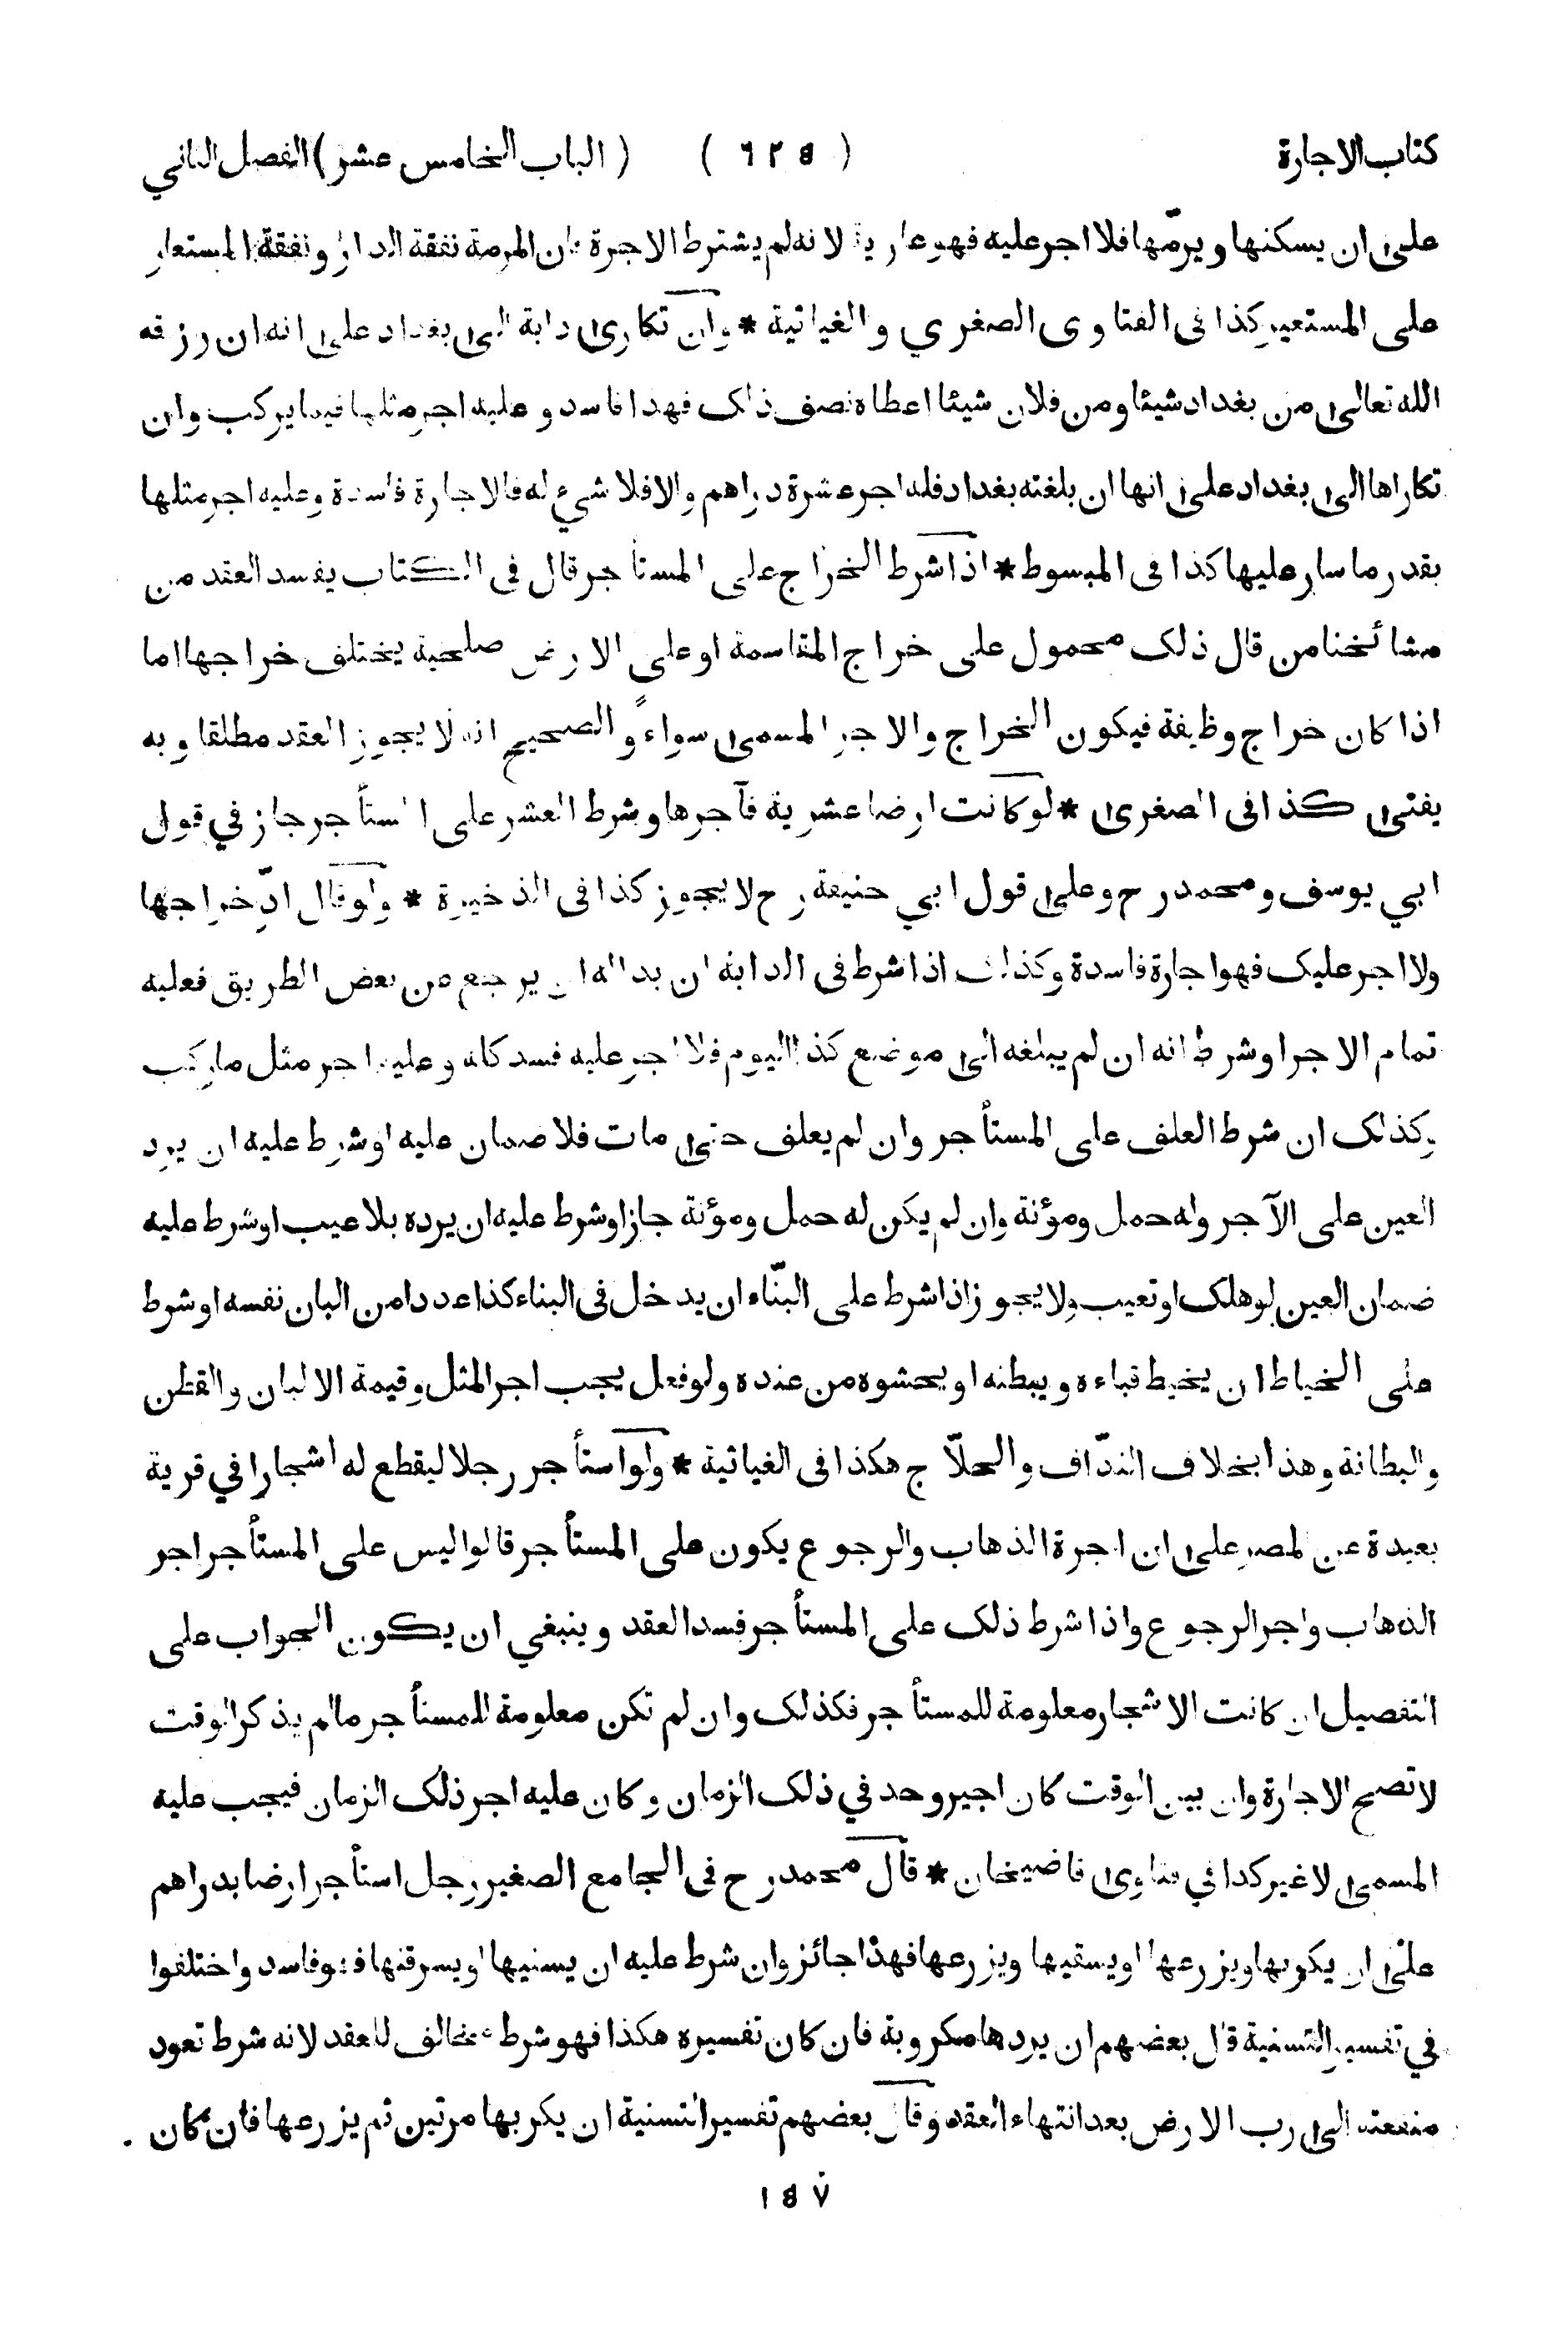 كتاب الاجارة ( ٦٢٥ ) ( الباب الخامس عشر ) الفصل الثاني
على ان يسكنها ويرمّها فلا اجر عليه فهو عارية لانه لم يشترط الاجرة فان المرمة نفقة الدار ونفقة المستعار
على المستعير كذا فى الفتاوى الصغري والغياثية * وان تكارى دابة الى بغداد على انه ان رزقه
الله تعالى من بغداد شيئا ومن فلان شيئا اعطاه نصف ذلك فهذا فاسد وعليه اجر مثلها فيما يركب وان
تكاراها الى بغداد على انها ان بلغته بغداد فله اجر عشرة دراهم والا فلا شيء له فالاجارة فاسدة وعليه اجر مثلها
بقدر ما سار عليها كذا فى المبسوط * اذا شرط الخراج على المستأجر قال فى الكتاب يفسد العقد من
مشائخنا من قال ذلك محمول على خراج المقاسمة او على الارض صلحية يختلف خراجها اما
اذا كان خراج وظيفة فيكون الخراج والاجر المسمى سواءً والصحيح انه لا يجوز العقد مطلقا وبه
يفتى كذا فى الصغرى * لو كانت ارضا عشرية فآجرها وشرط العشر على المستأجر جاز في قول
ابي يوسف ومحمد رح وعلى قول ابي حنيفة رح لا يجوز كذا فى الذخيرة * ولو قال ادّ خراجها
ولا اجر عليك فهو اجارة فاسدة وكذلك اذا شرط فى الدابة ان بدا له ان يرجع من بعض الطريق فعليه
تمام الاجر او شرط انه ان لم يبلغه الى موضع كذا اليوم فلا اجر عليه فسد كله وعليه اجر مثل ما ركب
وكذلك ان شرط العلف على المستأجر وان لم يعلف حتى مات فلا ضمان عليه او شرط عليه ان يرد
العين على الآجر وله حمل ومؤنة وان لم يكن له حمل ومؤنة جاز او شرط عليه ان يرده بلا عيب او شرط عليه
ضمان العين لو هلك او تعيب ولا يجوز اذا شرط على البنّاء ان يدخل فى البناء كذا عددا من البان نفسه او شرط
على الخياط ان يخيط قباءه ويبطنه او يحشوه من عنده ولو فعل يجب اجر المثل وقيمة الالبان والقطن
والبطانة وهذا بخلاف الندّاف والحلّاج هكذا فى الغياثية * ولو استأجر رجلا ليقطع له اشجارا في قرية
بعيدة عن المصر على ان اجرة الذهاب والرجوع يكون على المستأجر قالوا ليس على المستأجر اجر
الذهاب واجر الرجوع واذا شرط ذلك على المستأجر فسد العقد وينبغي ان يكون الجواب على
التفصيل ان كانت الاشجار معلومة للمستأجر فكذلك وان لم تكن معلومة للمستأجر ما لم يذكر الوقت
لا تصح الاجارة وان بين الوقت كان اجير وحد في ذلك الزمان وكان عليه اجر ذلك الزمان فيجب عليه
المسمى لا غير كذا في فتاوى قاضيخان * قال محمد رح فى الجامع الصغير رجل استأجر ارضا بدراهم
على ان يكربها ويزرعها او يسقيها ويزرعها فهذا جائز وان شرط عليه ان يسنيها او يسرقنها فهو فاسد واختلفوا
في تفسير التسنية قال بعضهم ان يردها مكروبة فان كان تفسيره هكذا فهو شرط مخالف للعقد لانه شرط تعود
منفعته الى رب الارض بعد انتهاء العقد وقال بعضهم تفسير التسنية ان يكربها مرتين ثم يزرعها فان كان
١٥٧